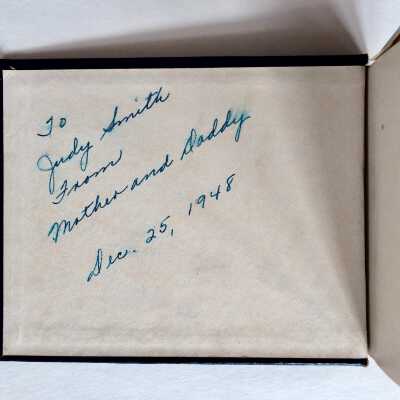 To
Judy Smith
From
Mother and Daddy
Dec. 25, 1948